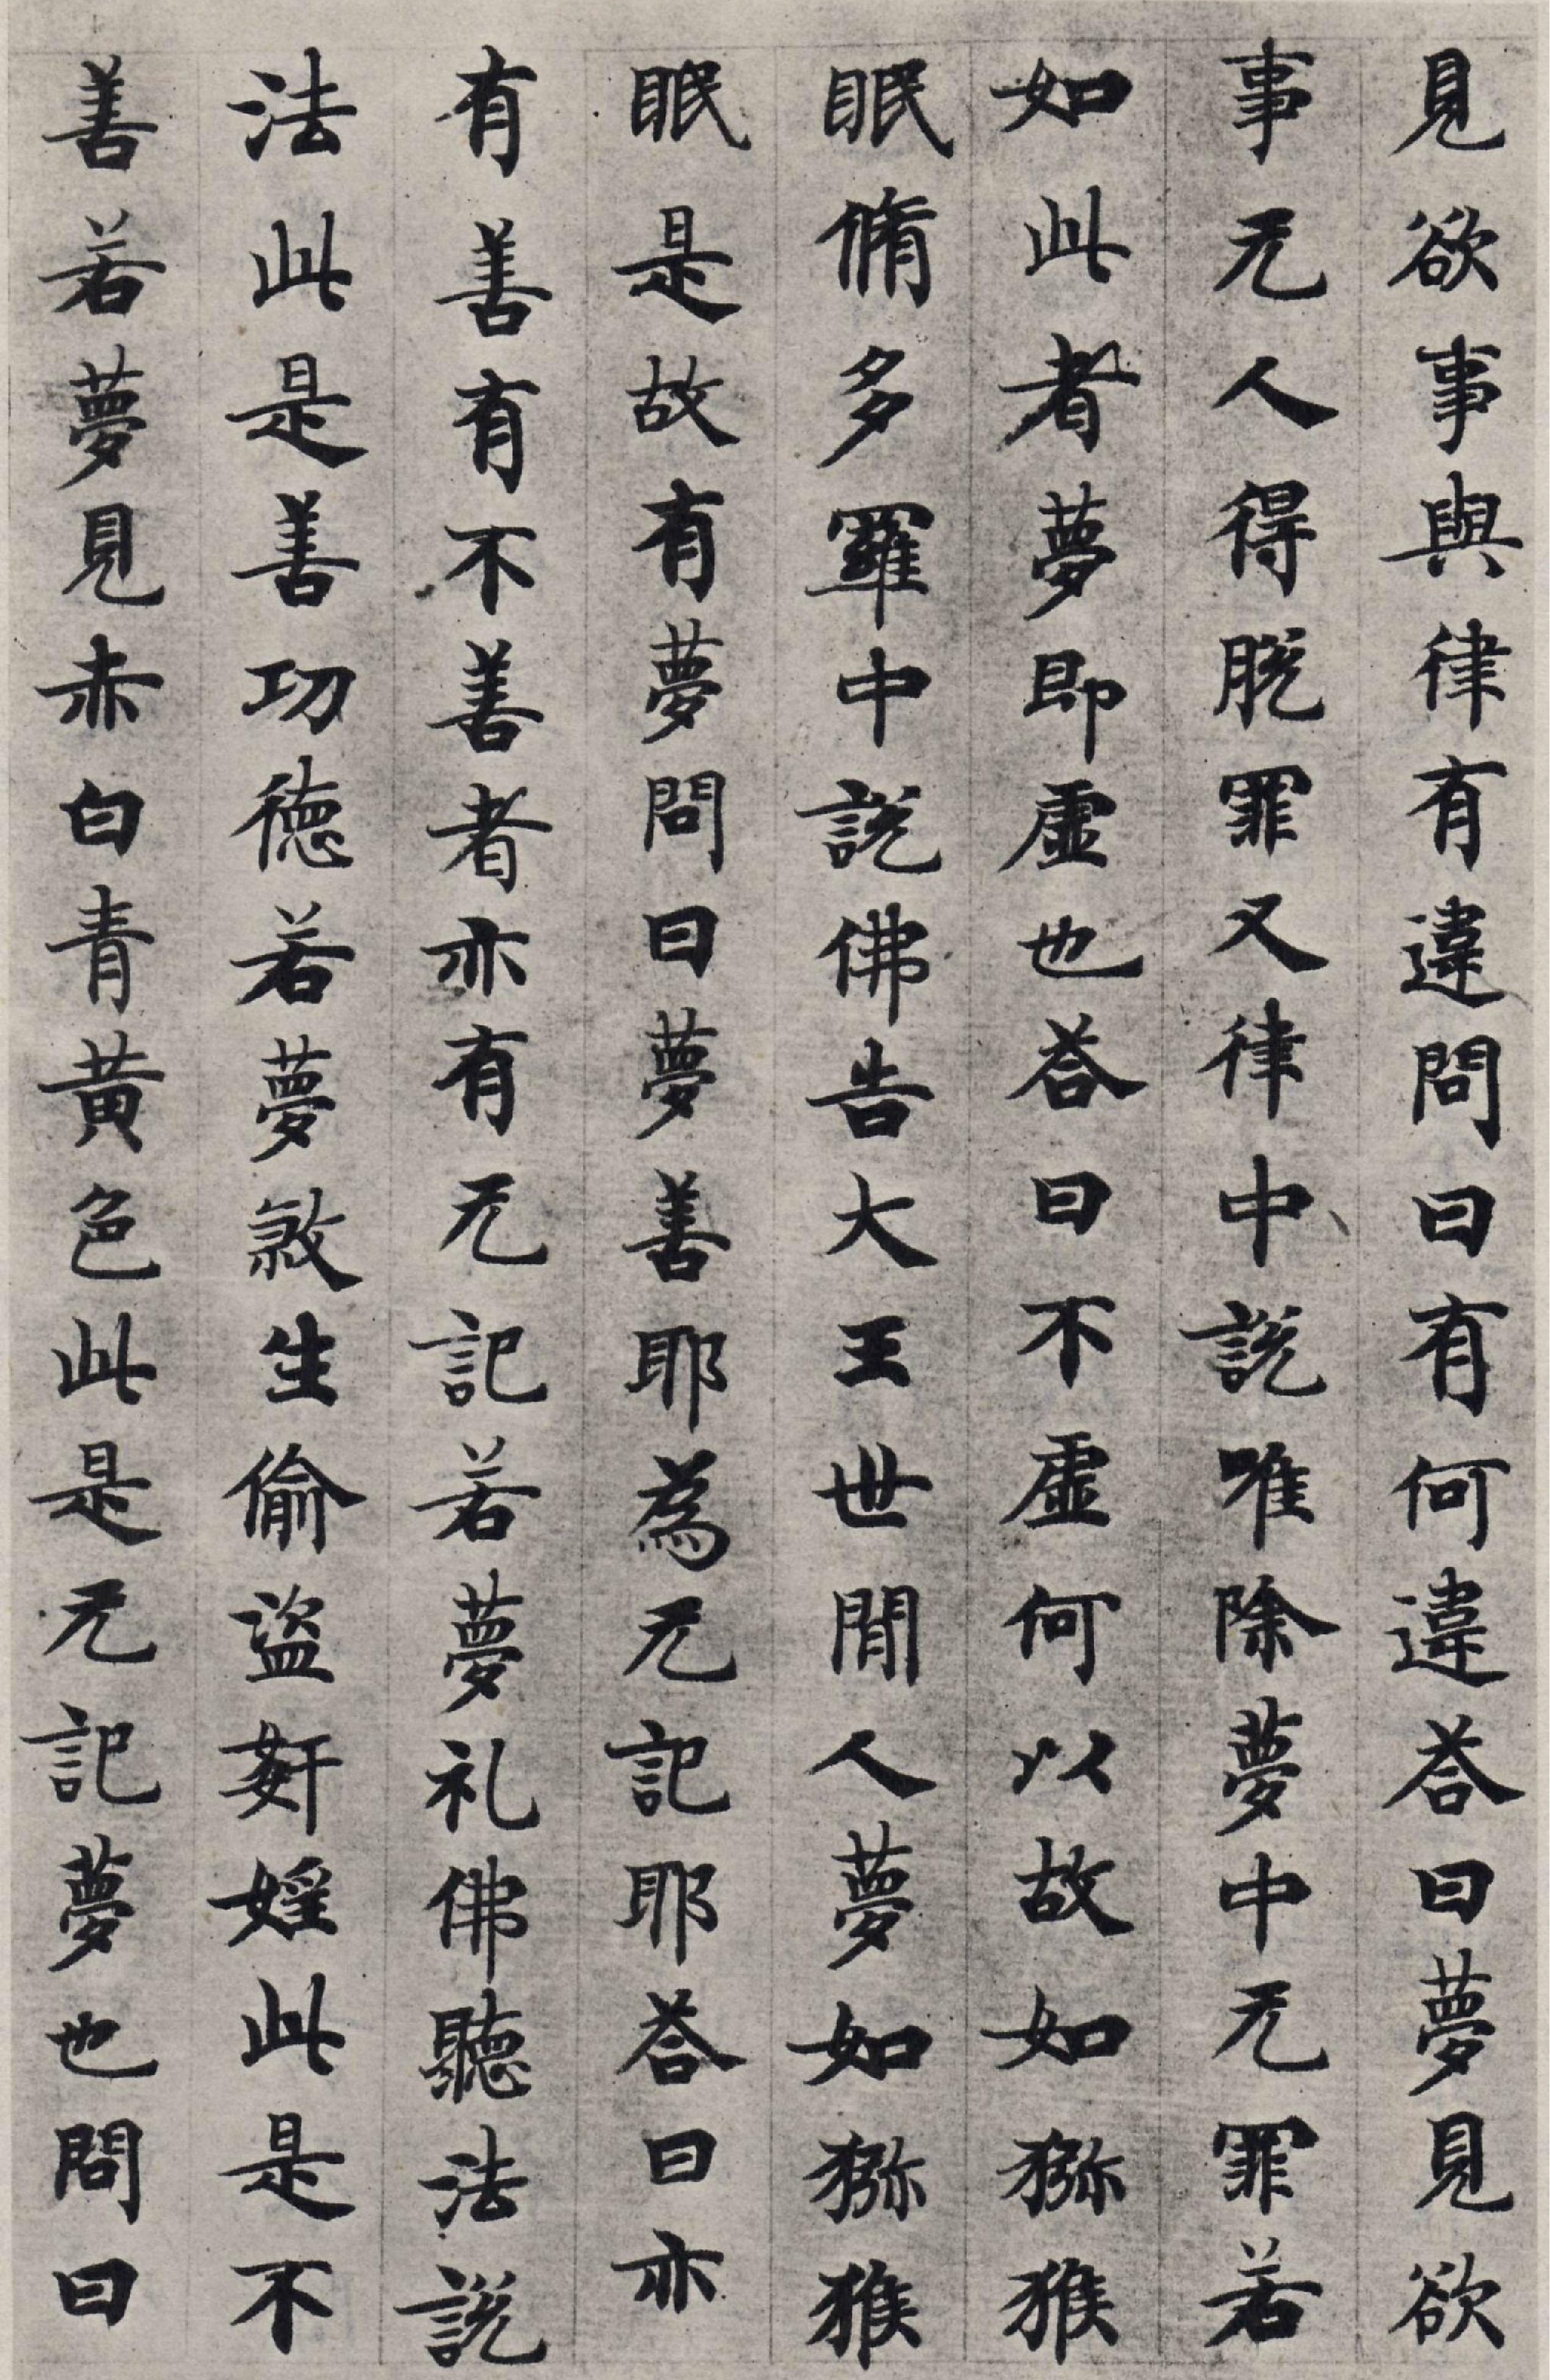 見欲事與律有違問曰有何違荅曰夢見欲
事无人得脫罪又律中說唯除夢中无罪若
如此者夢即虛也荅曰不虛何以故如猕猴
眠脩多羅中說佛告大王世間人夢如猕猴
眠是故有夢問曰夢善耶為无記耶荅曰亦
有善有不善者亦有无記若夢礼佛聽法說
法此是善功德若夢煞生偷盜姧婬此是不
善若夢見赤白青黃色此是无記夢也問曰